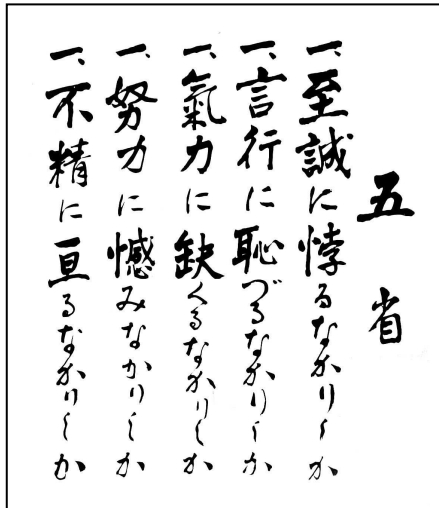 五省
一、至誠に悖るなかりしか
一、言行に恥づるなかりしか
一、氣力に缺くるなかりしか
一、努力に憾みなかりしか
一、不精に亘るなかりしか